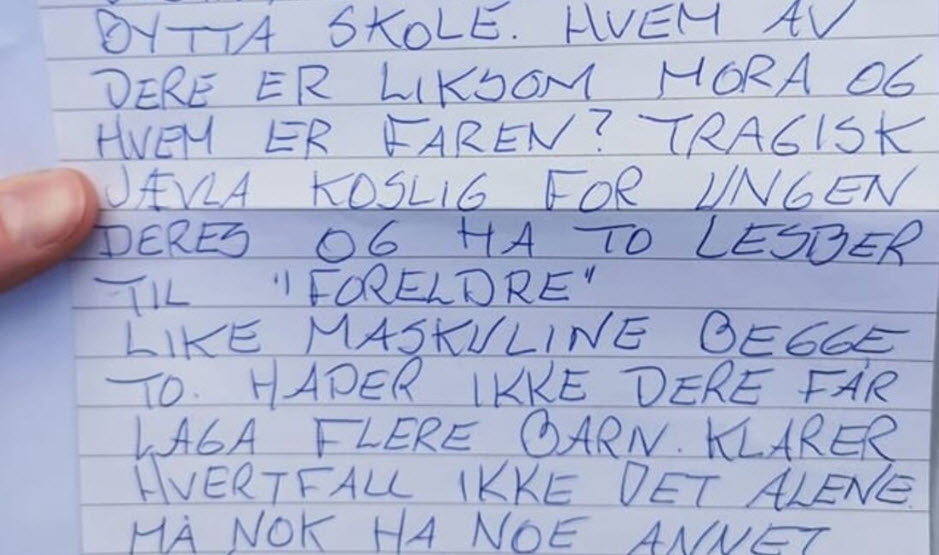 BYTTA SKOLE. HVEM AV
DERE ER LIKSOM MORA OG
HVEM ER FAREN? TRAGISK
JÆVLA KOSLIG FOR UNGEN
DERES OG HA TO LESBER
TIL "FORELDRE"
LIKE MASKULINE BEGGE
TO. HAPER IKKE DERE FÅR
LAGA FLERE BARN. KLARER
HVERTFALL IKKE DET ALENE.
MÅ NOK HA NOE ANNET